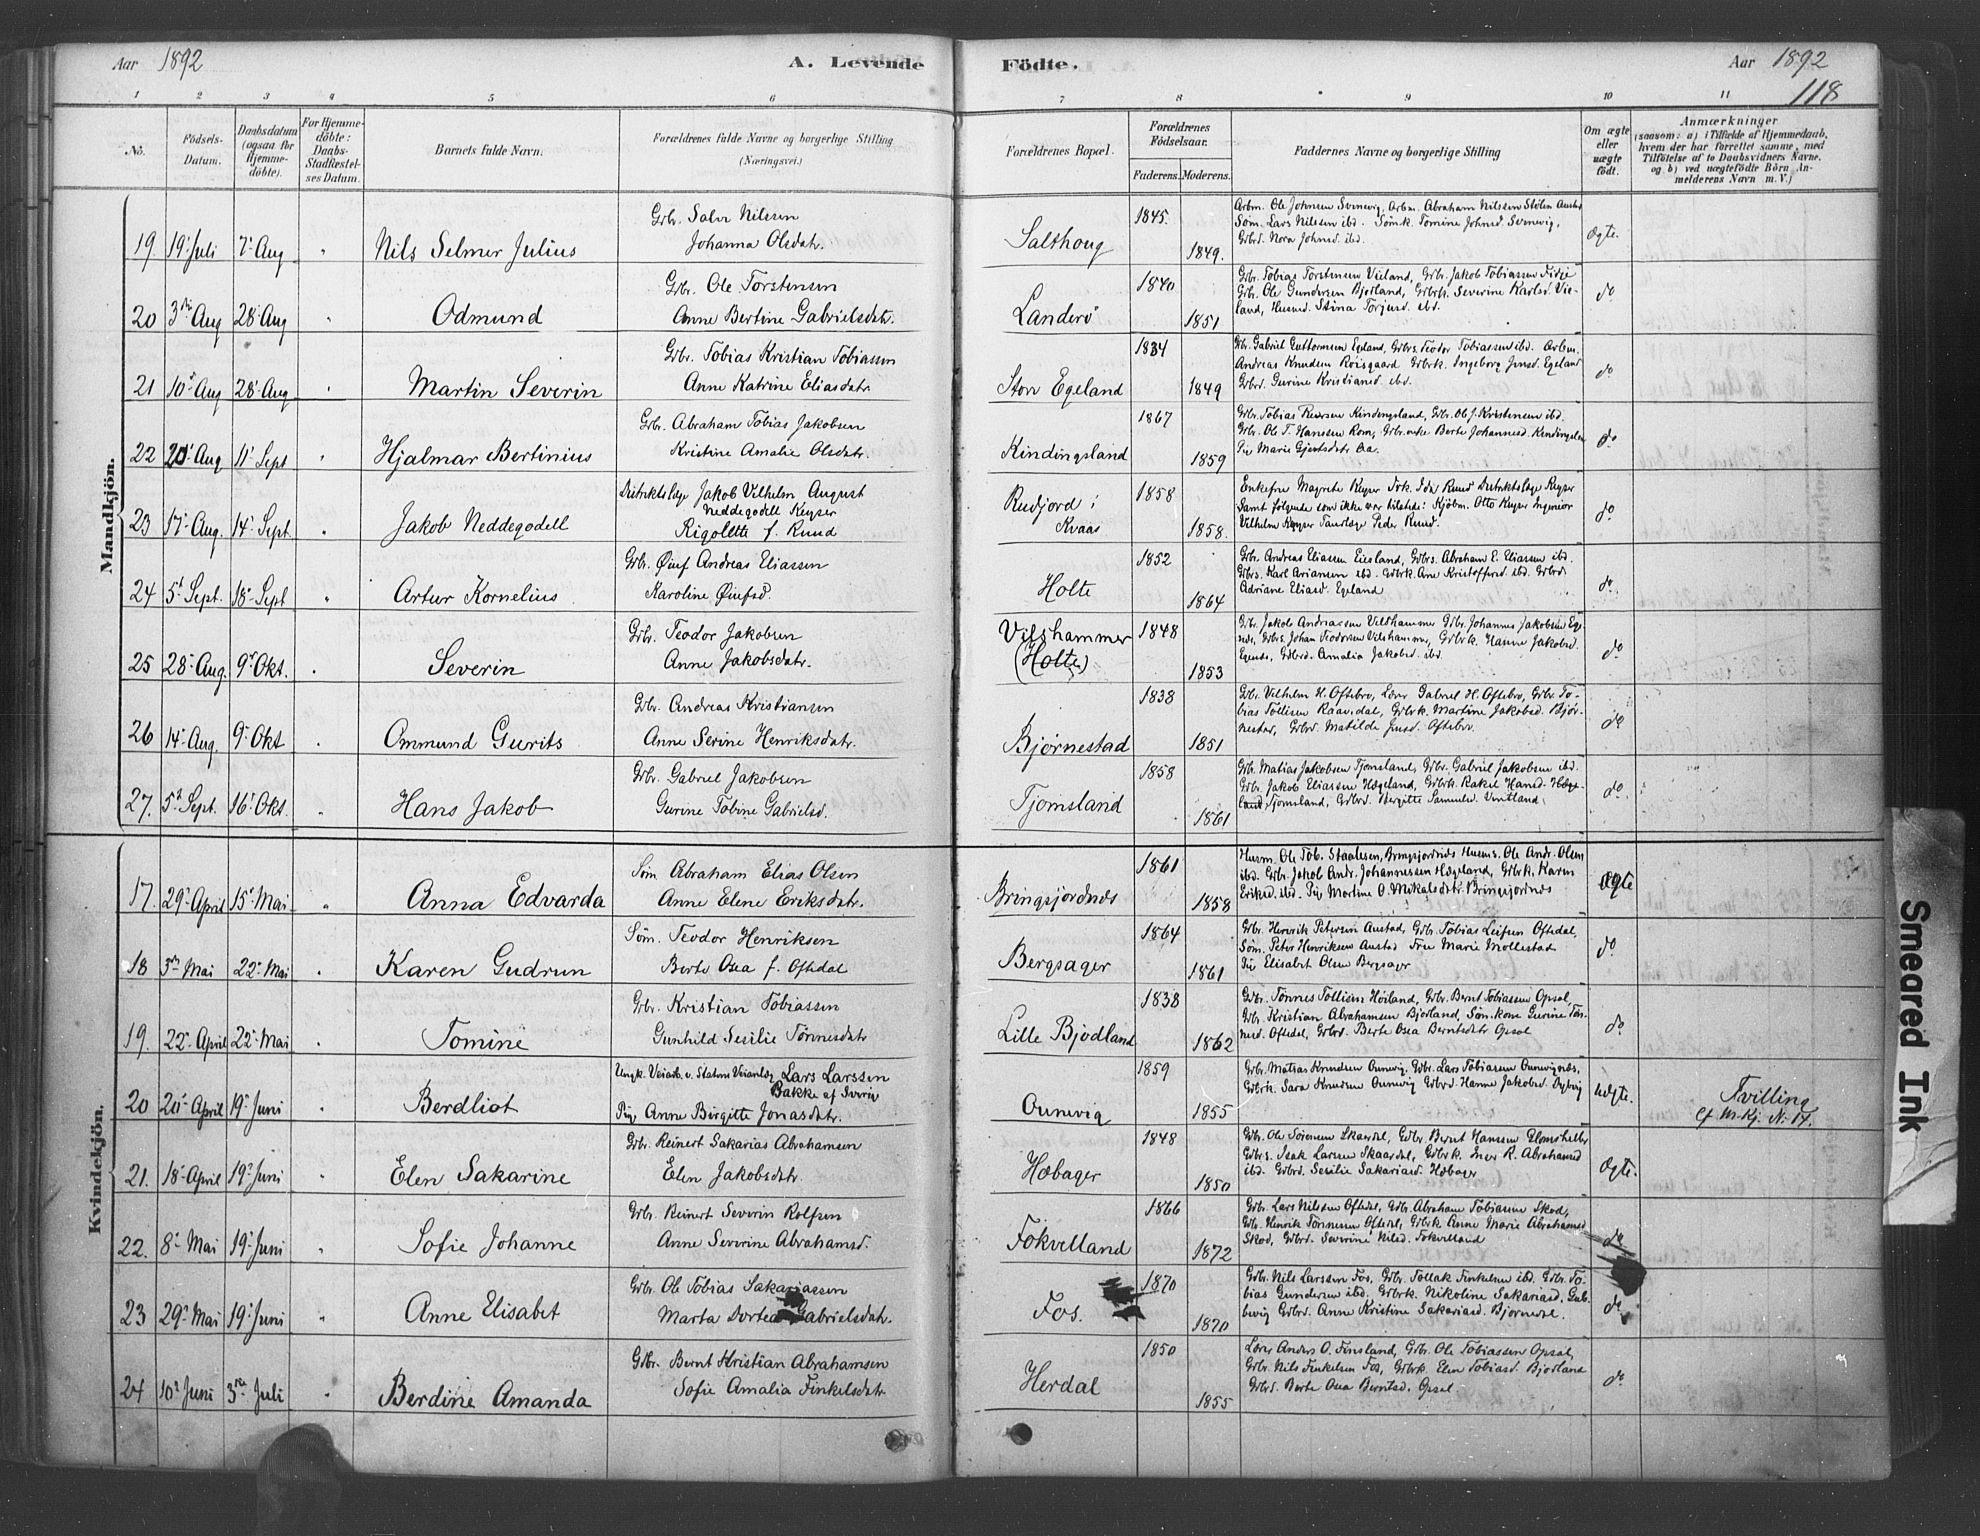 Aar 1892
A. Levende Födte.
Aar 1892
118
1 2 3 4 5 6 7 8 9 10 11
No.
Födsels-Datum.
Daabsdatum (ogsaa for Hjemme-döbte).
For Hjemme-döbte: Daabs-Stadfæstel-ses Datum.
Barnets fulde Navn.
Forældrenes fulde Navne og borgerlige Stilling (Næringsvei.)
Forældrenes Bopæl.
Forældrenes Födselsaar.
Faderens. Moderens.
Faddernes Navne og borgerlige Stilling
Om ægte eller uægte födt.
Anmærkninger
(saasom: a) i Tilfælde af Hjemmedaab, hvem der har forrettet samme, med Tilföielse af to Daabsvidners Navne, og b) ved uægtefödte Börn An-melderens Navn m. V.)
Mandkjön.
19. 19' Juli 7' Aug " Nils Selmer Julius
Grbr. Salve Nilssen
Johanna Olsdatr.
Salthoug 1845. 1849.
Arbm. Ole Johnsen Svenevig, Arbm. Abraham Nilssen
Søm. Lars Nilssen ibd. Sømk. Tomine Johnsd. Svenevig,
Grbrd. Nora Johnsd. ibd.
Ægte.
20 3die Aug 28' Aug " Odmund
Grbr. Ole Torstensen
Anne Bertine Gabrielsdatr.
Landerö 1840 1851
Grbr. Tobias Torstensen Vieland, Grbr. Jakob Tobiassen Fidje
Grbr. Ole Gundersen Bjodland, Grbrk. Severine Karlsd. Vie-
land, Husmd. Stina Torjusd. ibd.
do
21 10' Aug 28' Aug " Martin Severin
Grbr. Tobias Kristian Tobiassen
Anne Katrine Eliasdatr.
Stor Egeland 1834 1849
Grbr. Gabriel Guttormsen Egeland, Grbrs. Teodor Tobiassen ibd. Arbm.
Andreas Knudsen Röisgaard Grbrk. Ingeborg Jensd. Egeland
Grbrd. Gurine Kristiansd. ibd.
do
22 20' Aug 11' Sept " Hjalmar Bertinius
Grbr. Abraham Tobias Jakobsen
Kristine Amalie Olsdatr.
Kindingsland 1867 1859
Grbr. Tobias Kindingsland, Grbr. Ole J. Kristensen ibd.
Grbr. Ole T. Hanssen Rom, Grbr.enke Berte Johannesd. Kindingsland
Pig Marie Gjertsdatr Aa.
do
23 17' Aug. 14' Sept. " Jakob Neddegodell
Distriktslæge Jakob Vilhelm August
Neddegodell Keyser
Rigolette f. Ruud
Rudjord i
Kvaas 1858 1858.
Enkefru Magrete Keyser Frk. Ida Ruud Distriktslæge Keyser
Samt følgende som ikke var tilstede: Kjöbm. Otto Keyser Ingeniör
Vilhelm Keyser Peder Ruud.
do
24 5' Sept. 18' Sept " Artur Kornelius
Grbr. Øiuf Andreas Eliassen
Karoline Øiufsd.
Holte 1852 1864
Grbr. Andreas Eliassen Eiesland, Grbrs. Abraham E. Eliassen ibd.
Grbrs. Karl Ariansen ibd. Grbrk. Ane Kristoffersd. ibd. Grbrd
Adriane Eliasd. Egeland
do.
25 28' Aug. 9' Okt. " Severin
Grbr. Teodor Jakobsen
Anne Jakobsdatr.
Vilshammer
(Holte) 1848 1853
Grbr. Jakob Andreassen Vilshammer Grbr. Johannes Jakobsen Ege-
nes, Grbrs. Johan Teodorsen Vilshammer, Grbrk. Hanne Jakobsd.
Egenes, Grbrd. Amalia Jakobsd. ibd.
do
26 14' Aug. 9' Okt " Ommund Gurits
Grbr. Andreas Kristiansen
Anne Serine Henriksdatr.
Bjørnestad 1838 1851
Grbr. Vilhelm H. Oftebro, Lærer Gabriel H. Oftebro, Grbr. To-
bias Tollisen Raavdal, Grbrk. Martine Jakobsd. Bjør-
nestad, Grbrd. Matilde Jensd. Oftebro.
do
27. 5' Sept. 16' Okt. " Hans Jakob
Grbr. Gabriel Jakobsen
Gurine Tobine Gabrielsd.
Tjomsland 1858 1861
Grbr. Matias Jakobsen Tjomsland, Grbr. Gabriel Jakobsen ibd.
Grbr. Jakob Eliassen Hægeland, Grbrk. Rakel Hansd. Hæge-
land, Tjomsland, Grbrd. Bergitte Samuelsd. Vintland.
do.
Kvindekjön.
17. 29' April 15' Mai " Anna Edvarda
Søm Abraham Elias Olsen
Anne Elene Eriksdatr.
Bringsjordnes 1861 1858
Husm. Ole Tob. Staalesen, Bringsjordnes Husms. Ole Andr. Olsen
ibd. Grbr. Jakob Andr. Johannessen Hægeland, Grbrk. Karen
Eriksd. ibd. Pig Martine O. Mikalsdtr. Bringsjordnes
Ægte
18 3die Mai 22' Mai " Karen Gudrun
Søm. Teodor Henriksen
Berte Osea f. Oftedal
Bergsager 1864 1861
Grbr. Henrik Petersen Austad, Grbr. Tobias Leifsen Oftedal,
Søm. Peter Henriksen Austad Frue Marie Mollestad
Pig Elisabet Olsen Bergsager
do.
19. 22' April 22' Mai " Tomine
Grbr. Kristian Tobiassen
Gunhild Sesilie Tönnesdatr
Lille Bjodland 1838 1862
Grbr. Tønnes Tollisen Höiland, Grbr. Bernt Tobiassen Opsal,
Grbr. Kristian Abrahamsen Bjodland, Søm.kone Gurine Tön-
nesd. Oftedal, Grbrd. Berte Osea Berntsdatr Opsal
do
20 20' April 19' Juni " Berdliot
Ungk. Veiarb. v. Statens Veianlæg Lars Larssen
Bakke af
Pig Anne Birgitte Jonasdatr.
Ounevig 1859 1855
Grbr. Matias Knudsen Ounevig, Grbr. Lars Tobiassen Ounevignes,
Grbrk. Sara Knudsen Ounevig Grbrd. Hanne Jakobsd. Dybvig
uægte.
Tvilling
cf M.Kj. N: 17.
21. 18' April 19' Juni " Elen Sakarine
Grbr. Reinert Sakarias Abrahamsen
Elen Jakobsdatr.
Hæbager 1848 1850
Grbr. Ole Sörensen Skaardal, Grbr. Bernt Hanssen Glomsheller
Grbrs. Isak Larssen Skaardal, Grbrk. Inger R. Abrahamsd
ibd. Grbrd. Sesilie Sakariasd. Hæbager
Ægte.
22. 8' Mai 19' Juni " Sofie Johanne
Grbr. Reinert Severin Rolfsen
Anne Severine Abrahamsd.
Fokvelland 1866 1872
Grbr. Lars Nilssen Oftedal, Grbr. Abraham Tobiassen Skod,
Grbr. Henrik Tönnessen Oftedal, Grbrk Anne Marie Abrahamsd
Skod, Grbrd. Severine Nilsd. Fokvelland
do
23 29' Mai 19' Juni " Anne Elisabet
Grbr. Ole Tobias Sakariassen
Marta Dortea Gabrielsdatr.
Fos. 1870 1870
Grbr. Nils Larssen Fos, Grbr. Tollak Finkelsen ibd. Grbr. To-
bias Gundersen ibd. Grbrk. Nikoline Sakariasd.
Grbrd. Anne Kristine Sakariasd.
do
24 10' Juni 3die Juli " Berdine Amanda
Grbr. Bernt Kristian Abrahamsen
Sofie Amalia Finkelsdatr.
Herdal 1850 1855
Lærer Anders O. Finsland, Grbr. Ole Tobiassen Opsal,
Grbr. Nils Finkelsen Fos, Grbrk. Elen Tobiasd. Bjodland
Grbrd. Berte Osea Berntsd. Opsal
do
Smeared Ink